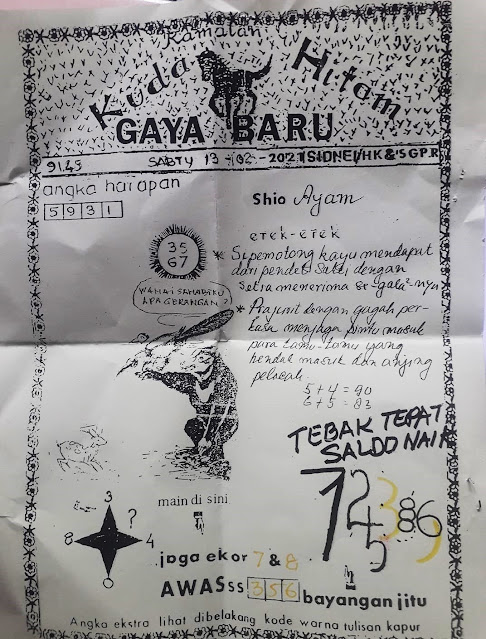 Ramalan
Kuda Hitam
GAYA BARU
SABTU 13-02-2021 SIDNEI/HK & SGP.R
angka harapan
5931
Shio Ayam
erek-erek
35
67
* Sipemotong kayu mendapat
dari pendeta Sakti dengan
Setia menerima se-gala²-nya
WAHAI SAHABATKU
APA GERANGAN?
* Prajurit dengan gagah per-
kasa menjaga pintu masuk
para tamu-tamu yang
hendak masuk dan anjing
pelacak.
5+4=90
6+5=83
TEBAK TEPAT
SALDO NAIK
main di sini
3
?
8 4
0
jaga ekor 7 & 8
AWASss 356 bayangan jitu
Angka ekstra lihat dibelakang kode warna tulisan kapur